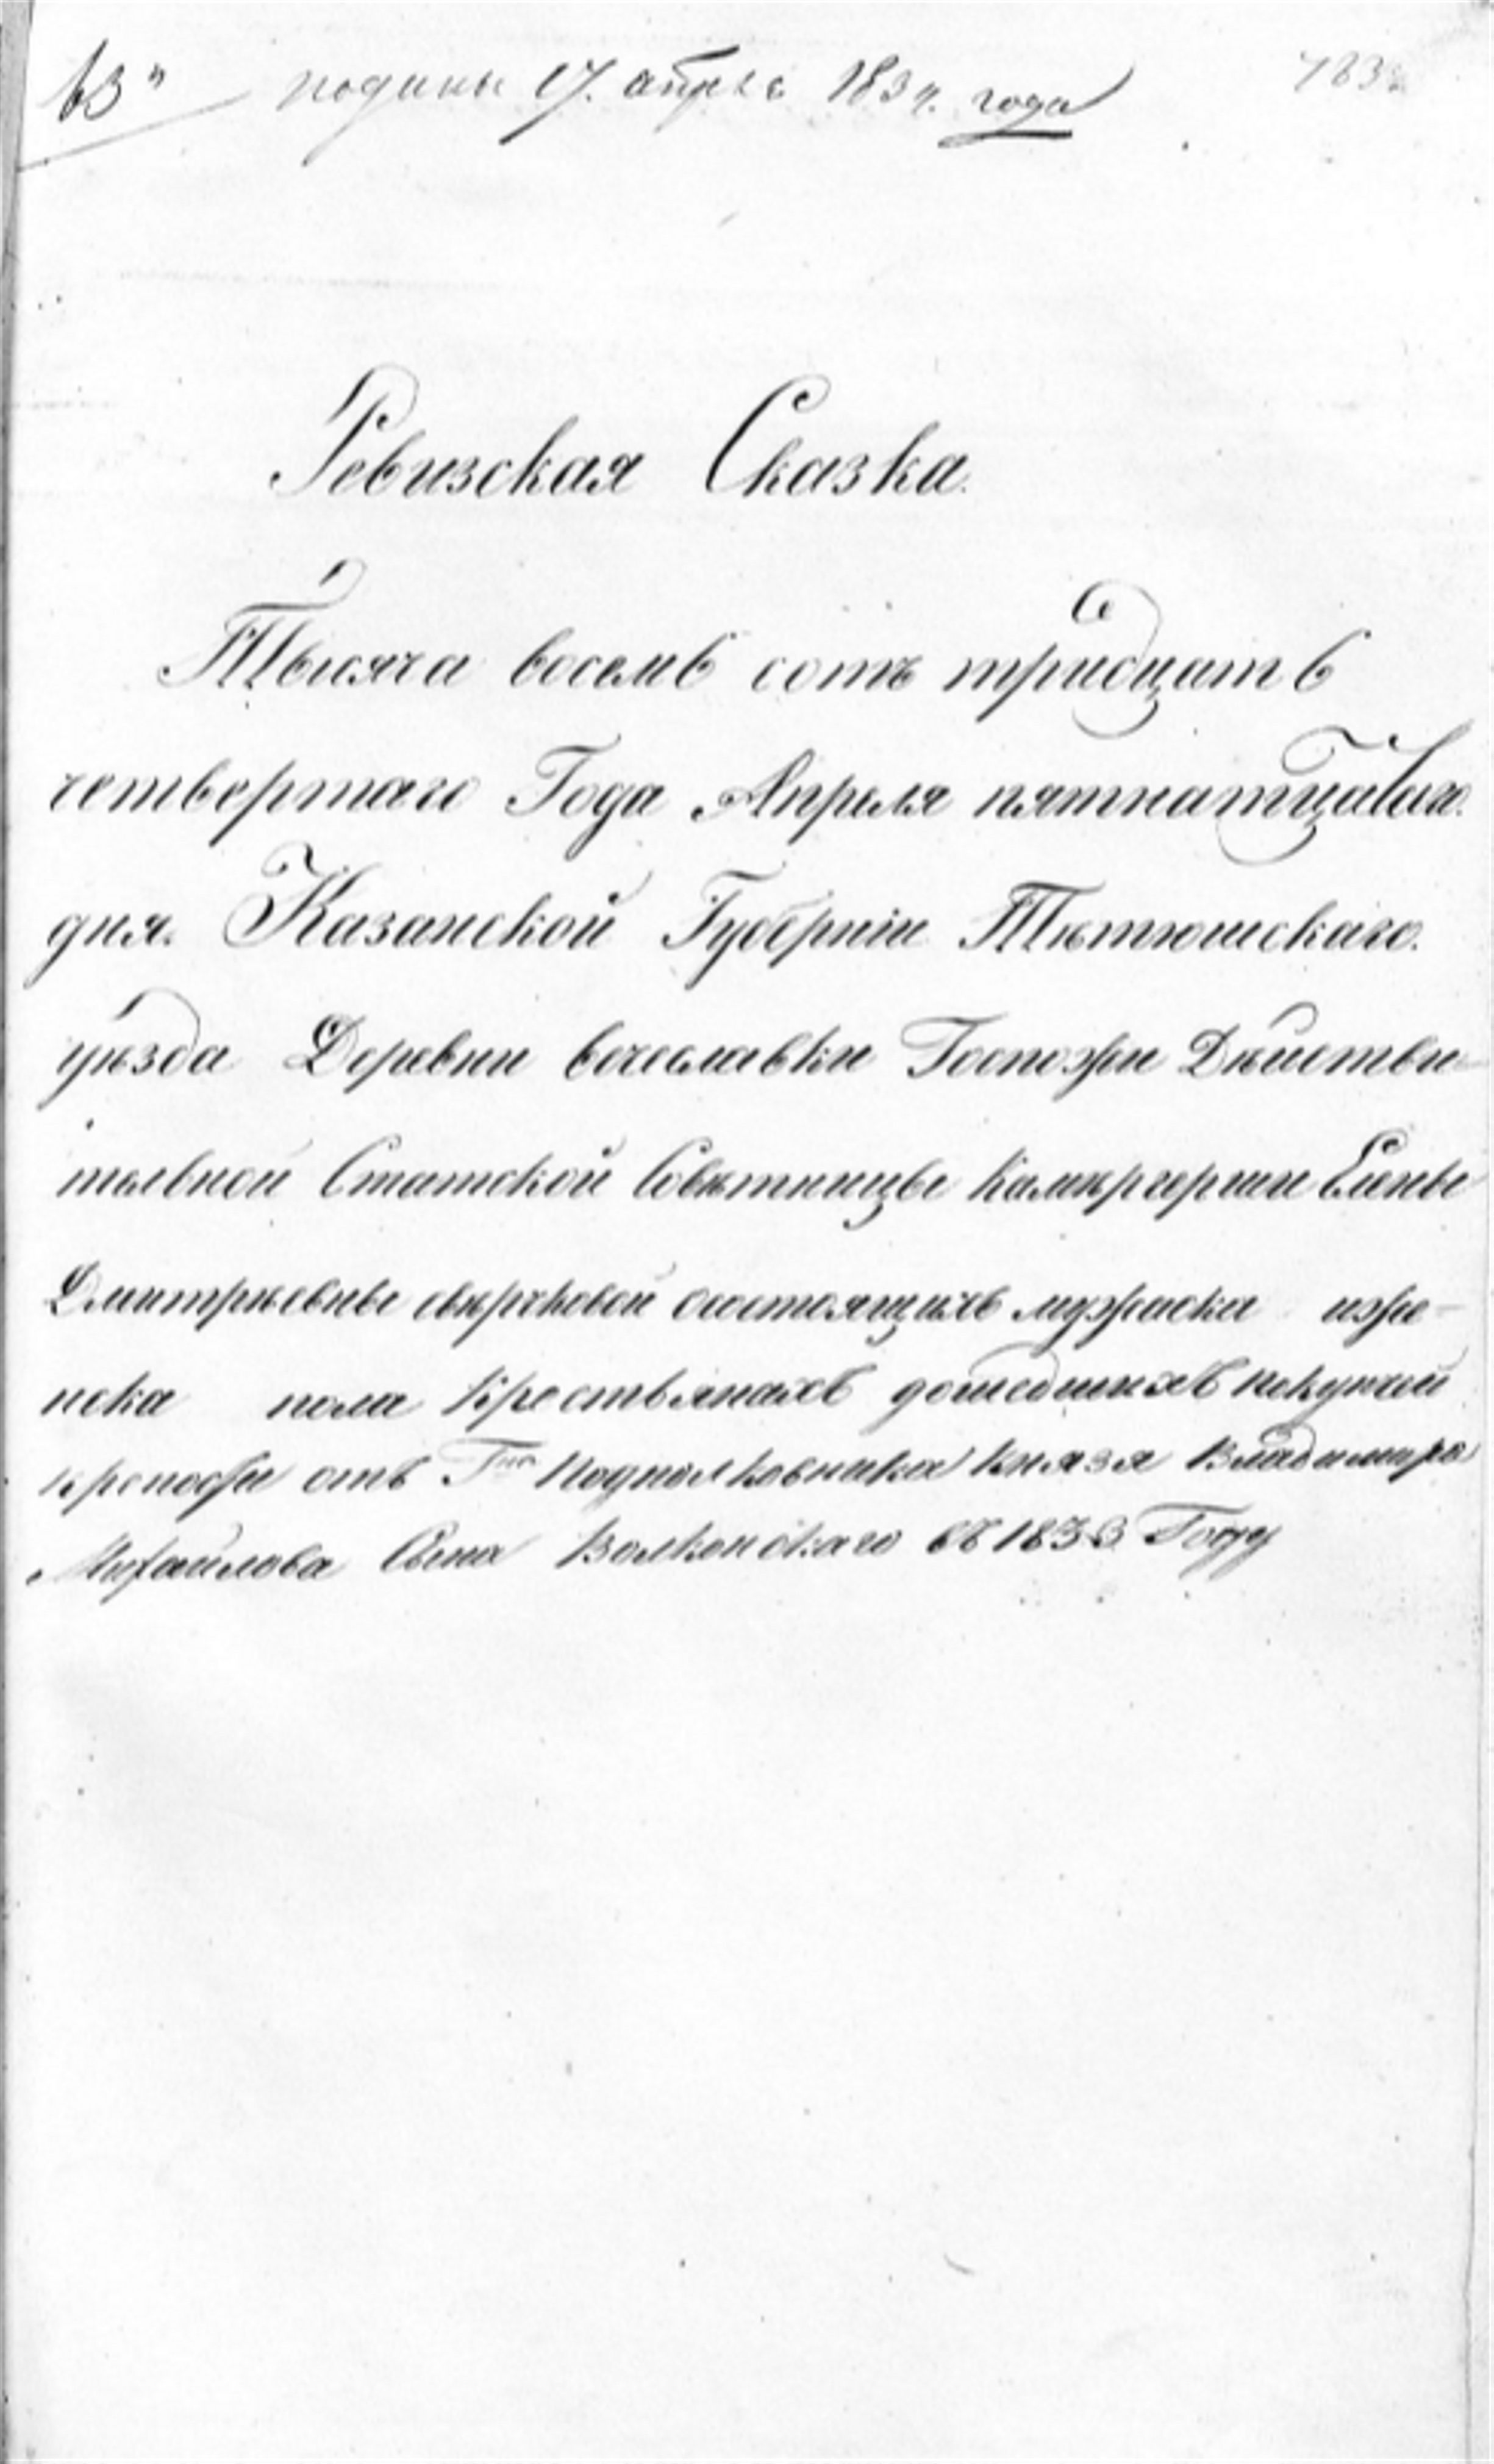 63
подины 17. апреля 1834. года
Ревизская Сказка.
Тысяча восемь сотъ тридцать
четвертаго Года Апреля пятнатцаваго.
дня. Казанской Губерніи Тѣтюшскаго.
уѣзда Деревни вечеславки Госпожи Дѣйстви-
тельной Статской Совѣтницы Камѣргерши Елены
Дмитрѣевны свѣрчковой состоящихъ мужеска иже-
нска пола Крестьянахъ дошедшихъ покупчей
крепости отъ Гна Подполковника Князя Владимира
Михайлова Сына Волконскаго въ 1833 Году